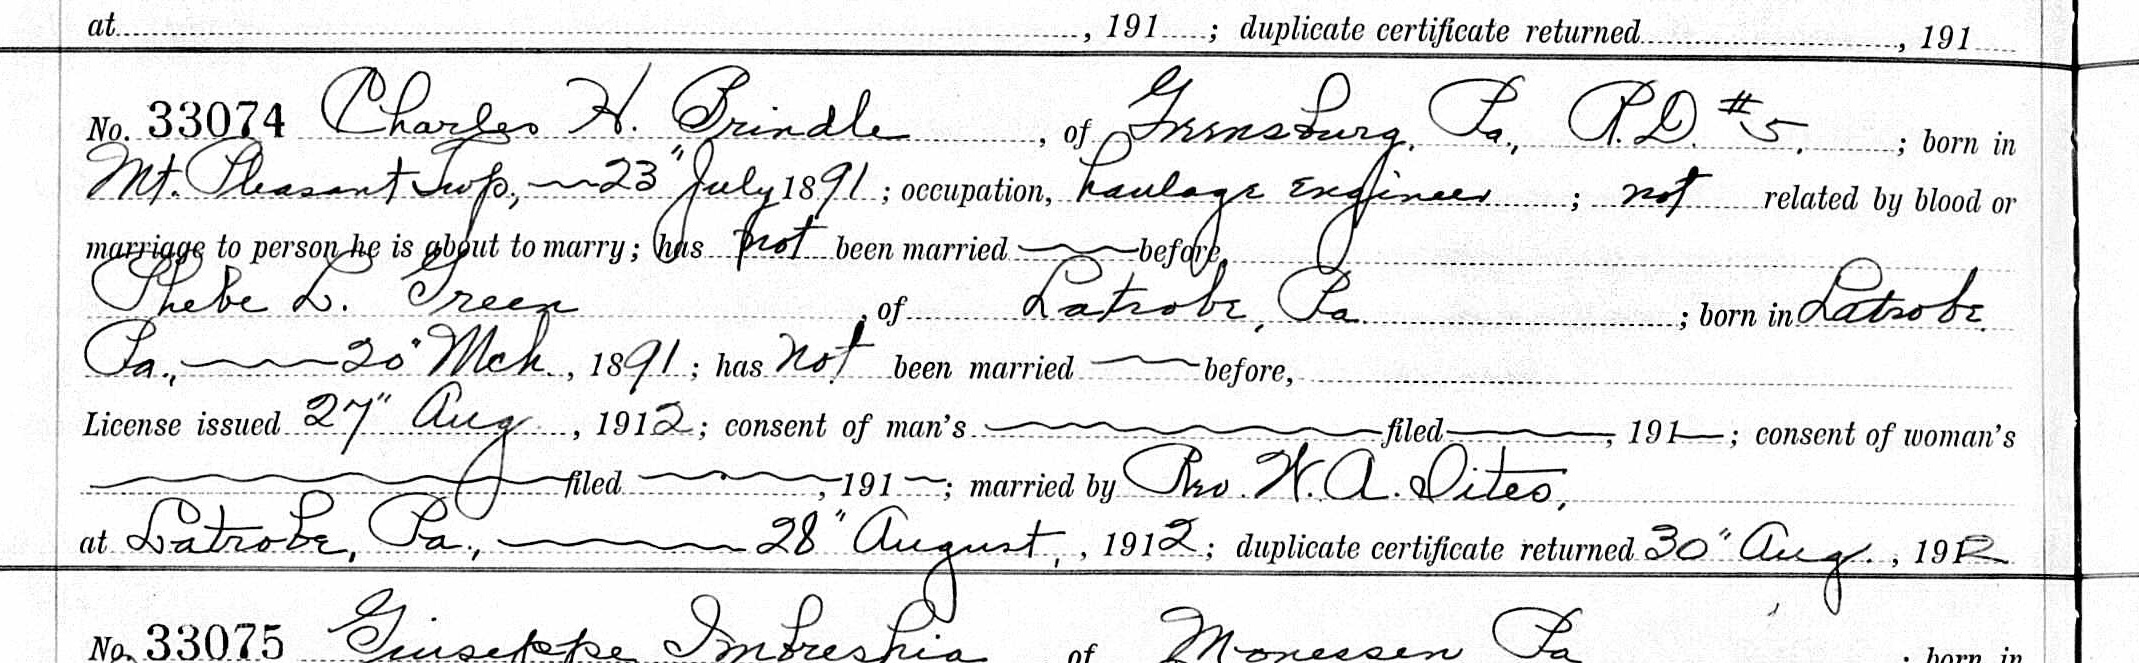 at , 191 ; duplicate certificate returned , 191
No. 33074 Charles H. Brindle , of Greensburg, Pa., R.D. #5. ; born in
Mt. Pleasant Twp., 23" July 1891 ; occupation, haulage engineer ; not related by blood or
marriage to person he is about to marry ; has not been married before,
Phebe L. Green , of Latrobe, Pa ; born in Latrobe
Pa., 20" Mch. , 1891 ; has not been married before,
License issued 27" Aug , 1912 ; consent of man's filed , 191 ; consent of woman's
filed , 191 ; married by Rev. W. A. Dites,
at Latrobe, Pa., 28" August , 1912 ; duplicate certificate returned 30" Aug. , 1912
No. 33075 Giuseppe of Monessen Pa ; born in